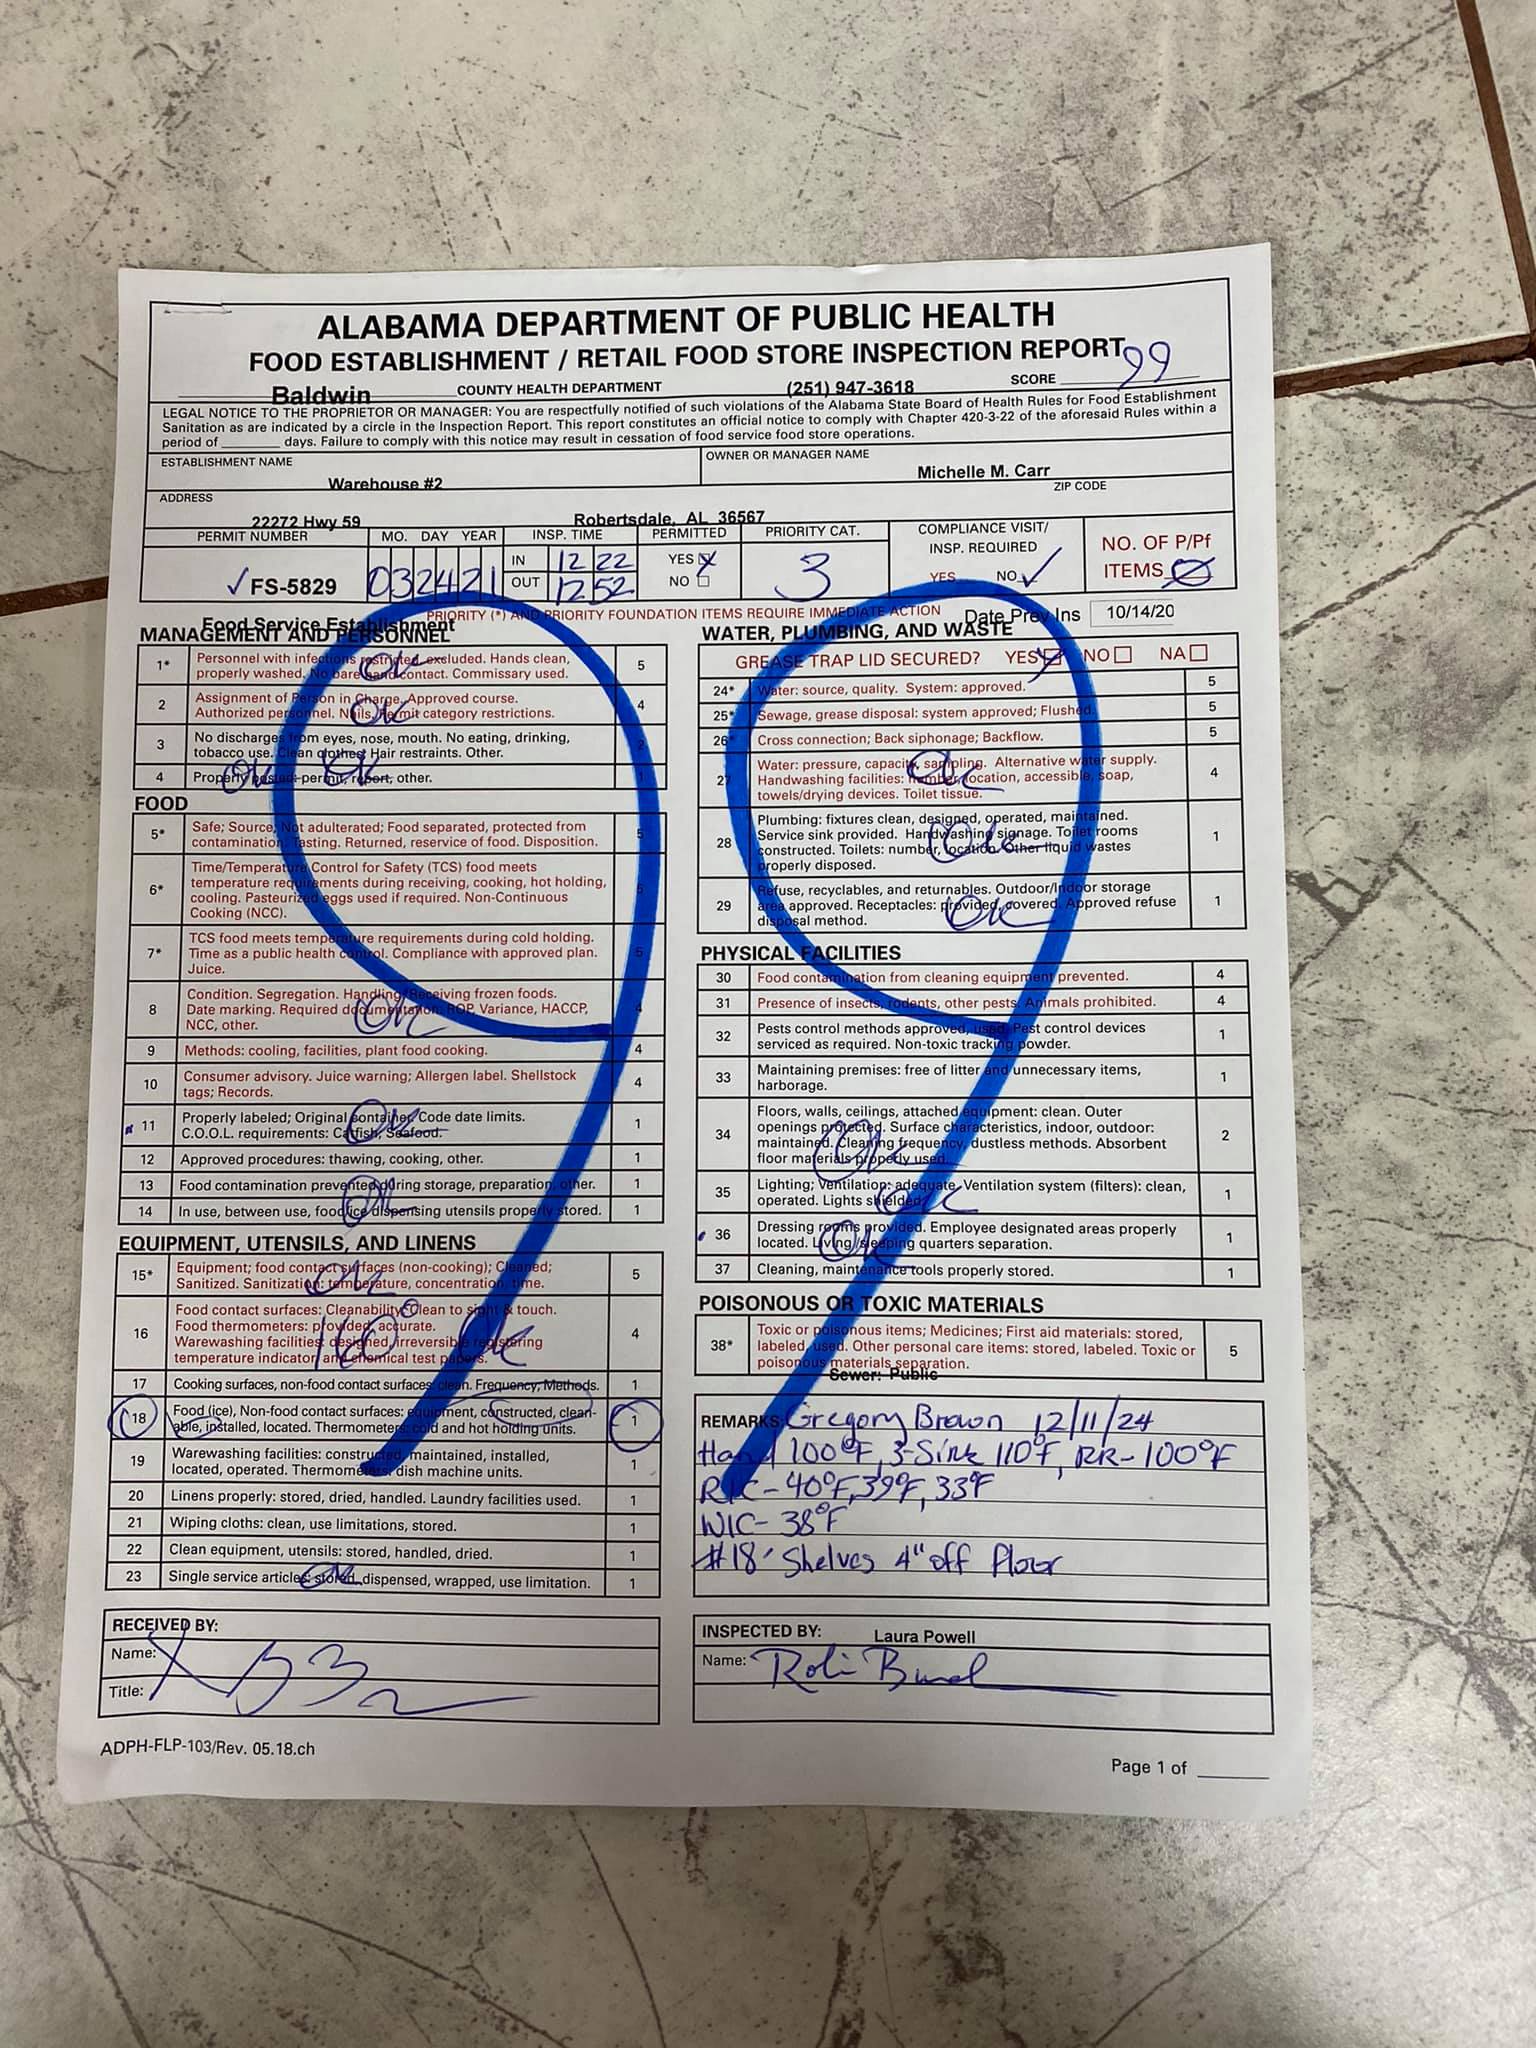 ALABAMA DEPARTMENT OF PUBLIC HEALTH
FOOD ESTABLISHMENT / RETAIL FOOD STORE INSPECTION REPORT
Baldwin COUNTY HEALTH DEPARTMENT (251) 947-3618 SCORE 99
LEGAL NOTICE TO THE PROPRIETOR OR MANAGER: You are respectfully notified of such violations of the Alabama State Board of Health Rules for Food Establishment
Sanitation as are indicated by a circle in the Inspection Report. This report constitutes an official notice to comply with Chapter 420-3-22 of the aforesaid Rules within a
period of ______ days. Failure to comply with this notice may result in cessation of food service food store operations.
ESTABLISHMENT NAME
Warehouse #2
OWNER OR MANAGER NAME
Michelle M. Carr
ADDRESS
22272 Hwy 59 Robertsdale, AL 36567
ZIP CODE
PERMIT NUMBER
✓ FS-5829
MO. DAY YEAR
032421
INSP. TIME
IN 12 22
OUT 12 52
PERMITTED
YES
NO
PRIORITY CAT.
3
COMPLIANCE VISIT/
INSP. REQUIRED
YES NO ✓
NO. OF P/Pf
ITEMS Ø
PRIORITY (*) AND PRIORITY FOUNDATION ITEMS REQUIRE IMMEDIATE ACTION
Date Prev Ins 10/14/20
Food Service Establishment
99
MANAGEMENT AND PERSONNEL
1* Personnel with infections restricted, excluded. Hands clean, 5
properly washed. No bare hand contact. Commissary used.
OK
2 Assignment of Person in Charge. Approved course. 4
Authorized personnel. Nails. Permit category restrictions.
OK
3 No discharges from eyes, nose, mouth. No eating, drinking, 2
tobacco use. Clean clothes. Hair restraints. Other.
OK
4 Properly posted: permit, report, other. 1
OK
FOOD
5* Safe; Source; Not adulterated; Food separated, protected from 5
contamination; Tasting. Returned, reservice of food. Disposition.
6* Time/Temperature Control for Safety (TCS) food meets 5
temperature requirements during receiving, cooking, hot holding,
cooling. Pasteurized eggs used if required. Non-Continuous
Cooking (NCC).
7* TCS food meets temperature requirements during cold holding. 5
Time as a public health control. Compliance with approved plan.
Juice.
8 Condition. Segregation. Handling/Receiving frozen foods. 4
Date marking. Required documentation: ROP, Variance, HACCP,
NCC, other.
OK
9 Methods: cooling, facilities, plant food cooking. 4
10 Consumer advisory. Juice warning; Allergen label. Shellstock 4
tags; Records.
11 Properly labeled; Original container. Code date limits. 1
C.O.O.L. requirements: Catfish, Seafood.
OK
12 Approved procedures: thawing, cooking, other. 1
13 Food contamination prevented during storage, preparation, other. 1
OK
14 In use, between use, food/ice dispensing utensils properly stored. 1
EQUIPMENT, UTENSILS, AND LINENS
15* Equipment; food contact surfaces (non-cooking); Cleaned; 5
Sanitized. Sanitization: temperature, concentration, time.
OK
16 Food contact surfaces: Cleanability; Clean to sight & touch. 4
Food thermometers: provided, accurate.
Warewashing facilities: designed, irreversible registering
temperature indicator and chemical test papers.
160° OK
17 Cooking surfaces, non-food contact surfaces: clean. Frequency; Methods. 1
18 Food (ice), Non-food contact surfaces: equipment, constructed, clean- 1
able, installed, located. Thermometers: cold and hot holding units.
19 Warewashing facilities: constructed, maintained, installed, 1
located, operated. Thermometers: dish machine units.
20 Linens properly: stored, dried, handled. Laundry facilities used. 1
21 Wiping cloths: clean, use limitations, stored. 1
22 Clean equipment, utensils: stored, handled, dried. 1
23 Single service articles: stored, dispensed, wrapped, use limitation. 1
OK
WATER, PLUMBING, AND WASTE
GREASE TRAP LID SECURED? YES NO NA
24* Water: source, quality. System: approved. 5
25* Sewage, grease disposal: system approved; Flushed. 5
26* Cross connection; Back siphonage; Backflow. 5
27 Water: pressure, capacity, sampling. Alternative water supply. 4
Handwashing facilities: number, location, accessible, soap,
towels/drying devices. Toilet tissue.
OK
28 Plumbing: fixtures clean, designed, operated, maintained. 1
Service sink provided. Handwashing signage. Toilet rooms
constructed. Toilets: number, location. Other liquid wastes
properly disposed.
OK
29 Refuse, recyclables, and returnables. Outdoor/Indoor storage 1
area approved. Receptacles: provided, covered. Approved refuse
disposal method.
OK
PHYSICAL FACILITIES
30 Food contamination from cleaning equipment prevented. 4
31 Presence of insects, rodents, other pests. Animals prohibited. 4
32 Pests control methods approved, used. Pest control devices 1
serviced as required. Non-toxic tracking powder.
33 Maintaining premises: free of litter and unnecessary items, 1
harborage.
34 Floors, walls, ceilings, attached equipment: clean. Outer 2
openings protected. Surface characteristics, indoor, outdoor:
maintained. Cleaning frequency, dustless methods. Absorbent
floor materials properly used.
OK
35 Lighting; Ventilation: adequate. Ventilation system (filters): clean, 1
operated. Lights shielded.
OK
36 Dressing rooms provided. Employee designated areas properly 1
located. Living/sleeping quarters separation.
OK
37 Cleaning, maintenance tools properly stored. 1
POISONOUS OR TOXIC MATERIALS
38* Toxic or poisonous items; Medicines; First aid materials: stored, 5
labeled, used. Other personal care items: stored, labeled. Toxic or
poisonous materials separation.
Sewer: Public
REMARKS: Gregory Brown 12/11/24
Hand 100°F, 3-Sink 110°F, RR- 100°F
RIC- 40°F, 39°F, 33°F
WIC- 38°F
#18' Shelves 4" off floor
RECEIVED BY:
Name:
Title:
INSPECTED BY: Laura Powell
Name:
ADPH-FLP-103/Rev. 05.18.ch
Page 1 of ______